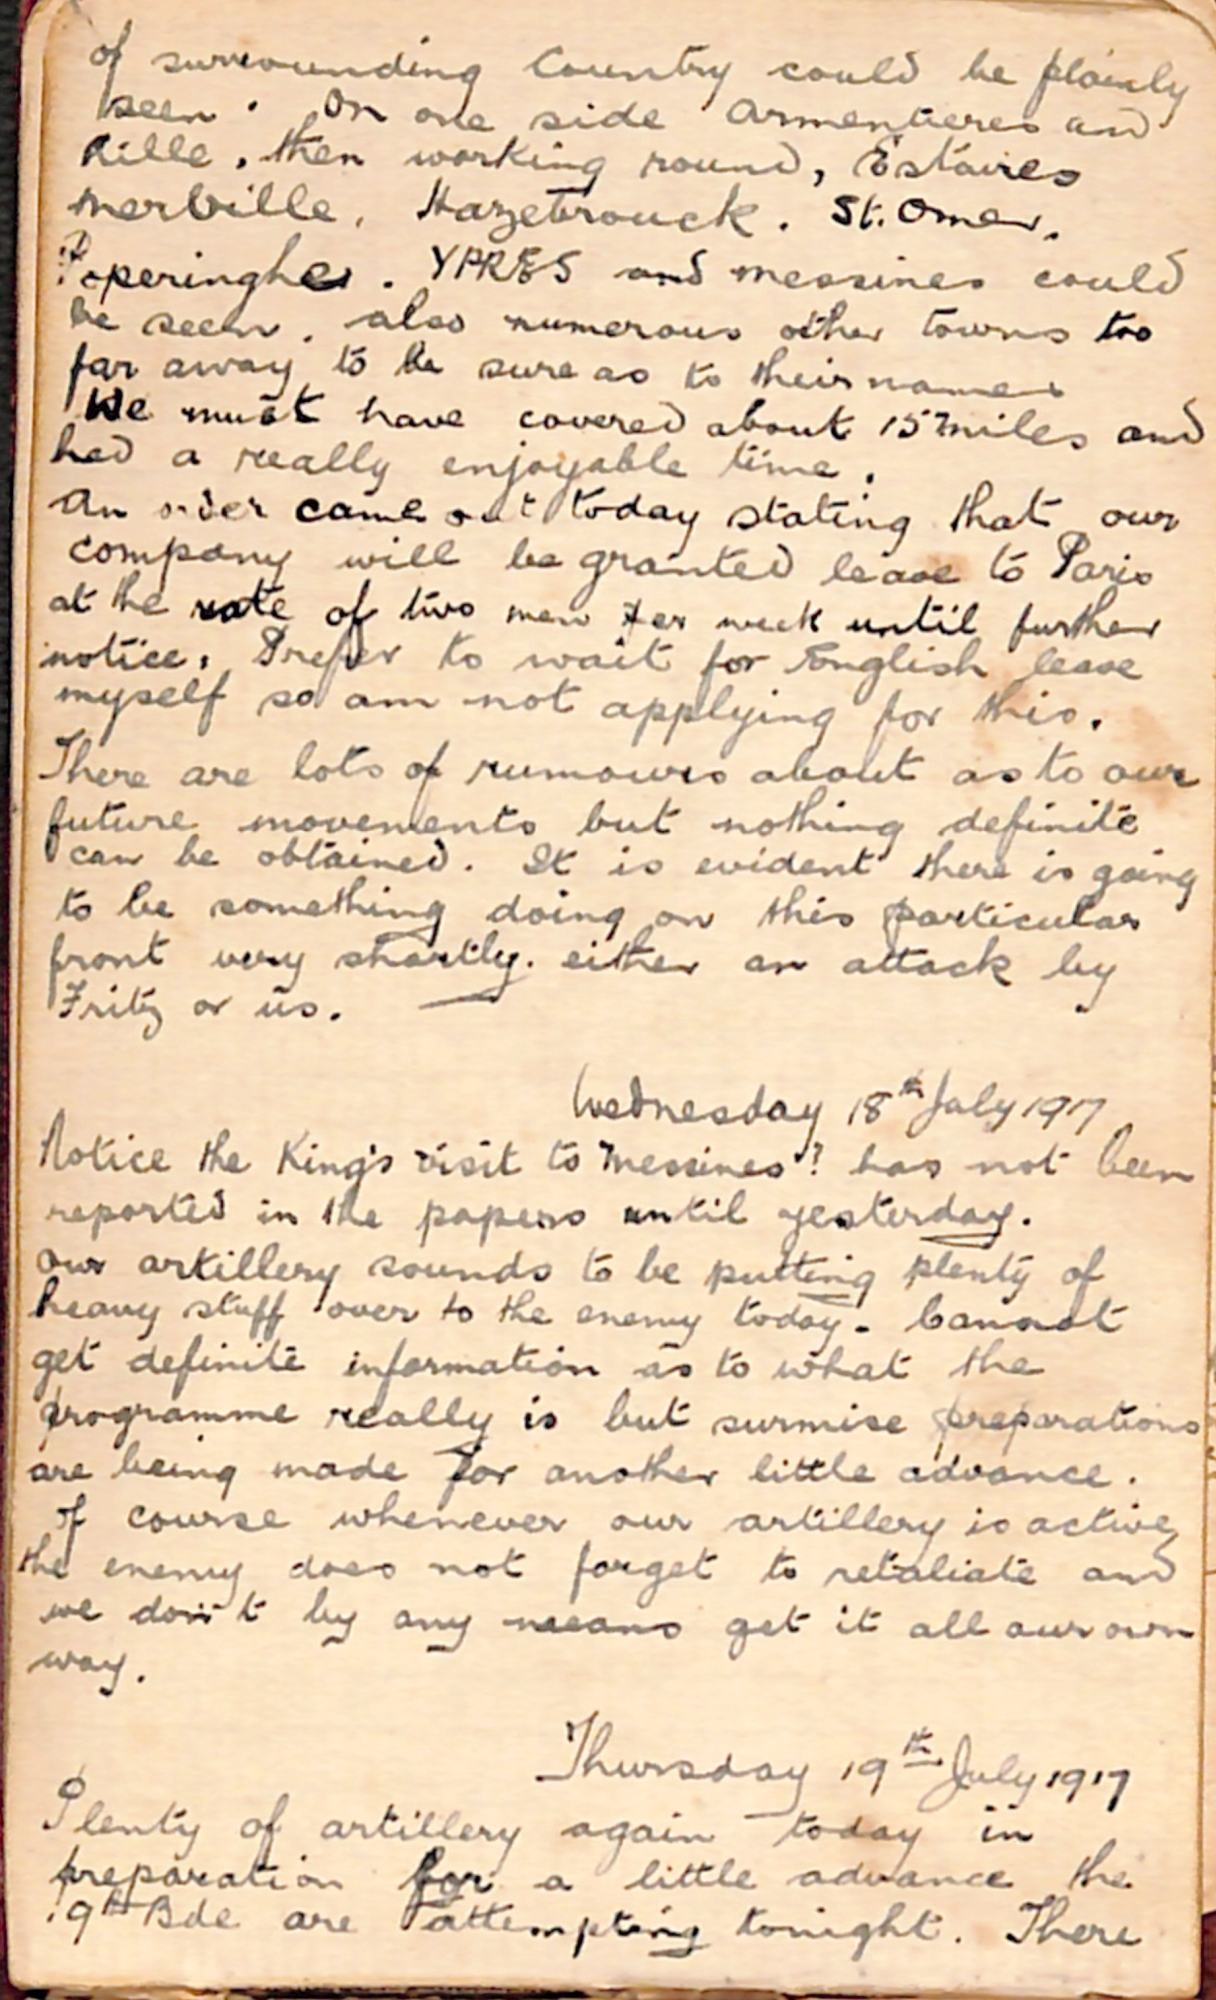 of surrounding Country could be plainly
seen. On one side Armentieres and
Lille, then working round, Estaires
Merville, Hazebrouck. St. Omer.
Poperinghe. YPRES and Messines could
be seen, also numerous other towns too
far away to be sure as to their names
We must have covered about 15 miles and
had a really enjoyable time.
An order came out today stating that our
company will be granted leave to Paris
at the rate of two men per week until further
notice. Prefer to wait for English leave
myself so am not applying for this.
There are lots of rumours about as to our
future movements but nothing definite
can be obtained. It is evident there is going
to be something doing on this particular
front very shortly. either an attack by
Fritz or us.
Wednesday 18th July 1917
Notice the King's visit to Messines? has not been
reported in the papers until yesterday.
Our artillery sounds to be putting plenty of
heavy stuff over to the enemy today. Cannot
get definite information as to what the
programme really is but surmise preparations
are being made for another little advance.
Of course whenever our artillery is active
the enemy does not forget to retaliate and
we don't by any means get it all our own
way.
Thursday 19th July 1917
Plenty of artillery again today in
preparation for a little advance the
19th Bde are attempting tonight. There